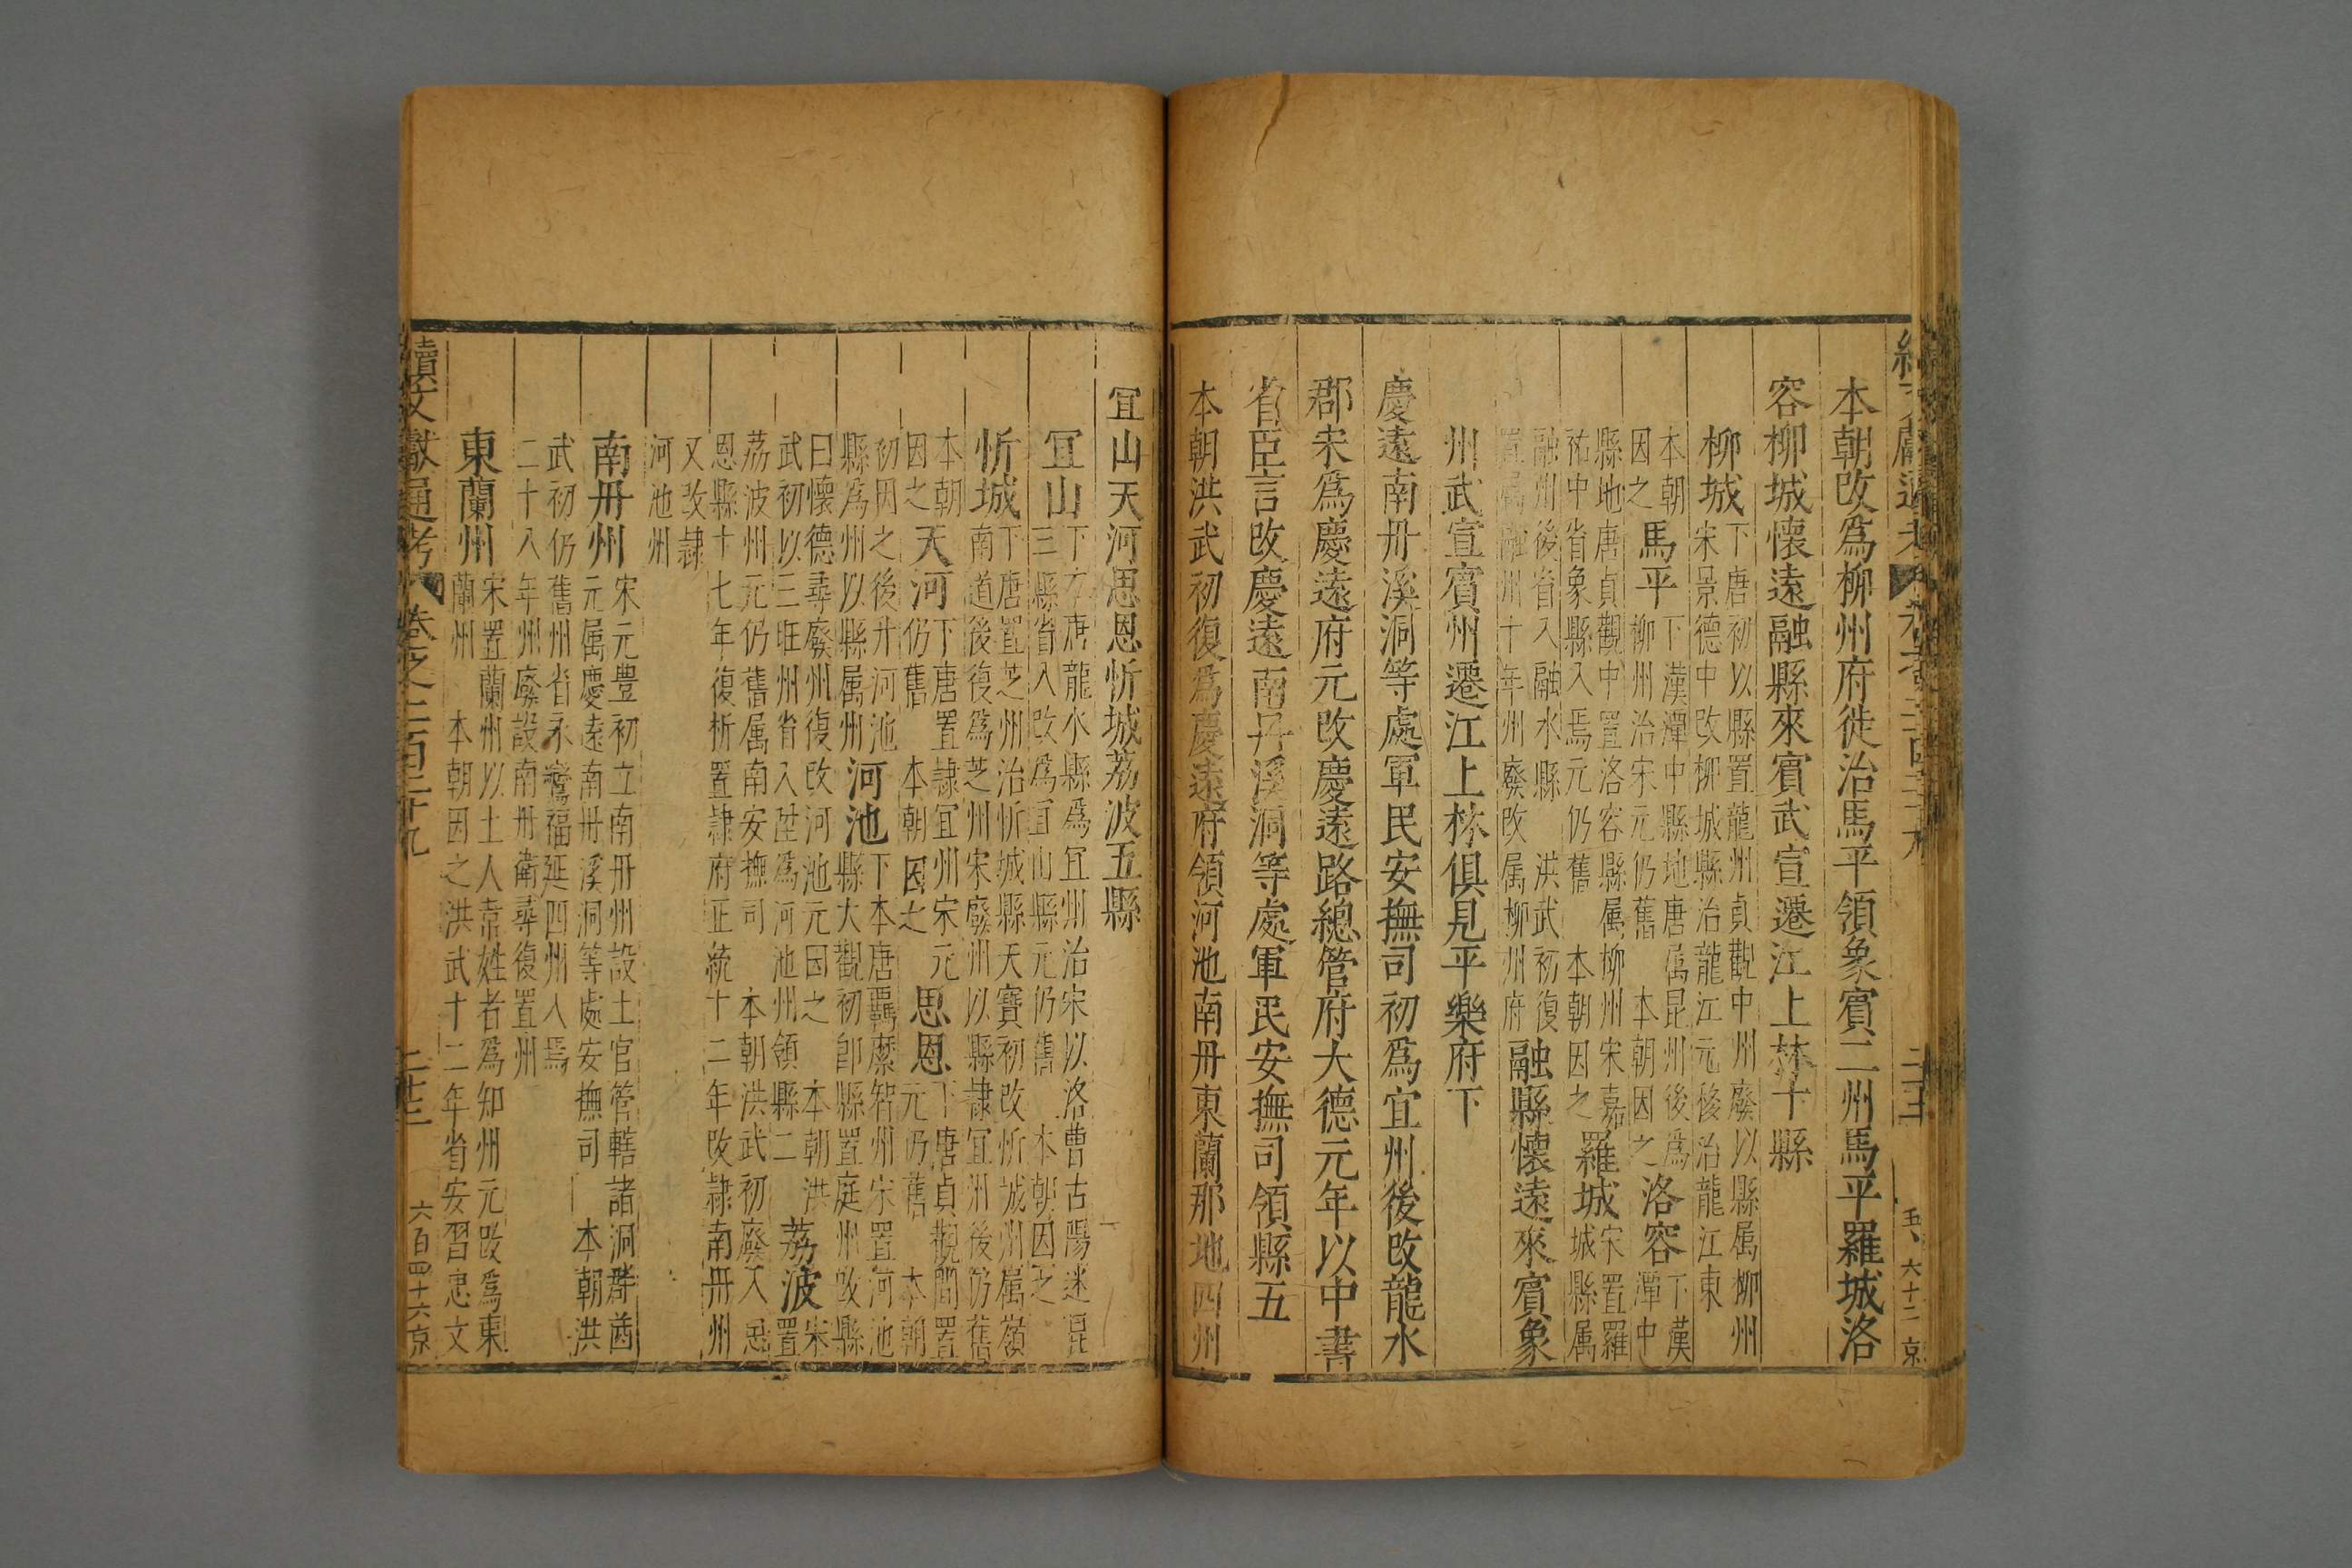 本朝改爲柳州府徒治馬平領象賓二州馬平羅城洛
容柳城懷遠融縣來賓武宣遷江上林十縣
柳城
下唐初以縣置龍州貞觀中州廢以縣属柳州
宋景德中改柳城縣治龍江元後治龍江東
本朝
因之
馬平
下漢潭中縣地唐属昆州後爲
柳州治宋元仍舊 本朝因之
洛容
下漢
潭中
縣地唐貞觀中置洛容縣属柳州宋嘉
祐中省象縣入焉元仍舊 本朝因之
羅城
宋置羅
城縣属
融州後省入融水縣 洪武初復
置属融州十年州廢改属柳州府
融縣懷遠來賓象
州武宣賓州遷江上林俱見平樂府下
慶遠南丹溪洞等處軍民安撫司初爲宜州後改龍水
郡宋爲慶遠府元改慶遠路總管府大德元年以中書
省臣言改慶遠南丹溪洞等處軍民安撫司領縣五
本朝洪武初復爲慶遠府領河池南丹東蘭那地四州
宜山天河思恩忻城荔波五縣
宜山
下 唐龍水縣爲宜州治宋以洛曹古陽述昆
三縣省入改爲宜山縣元仍舊 本朝因之
忻城
下唐置芝州治忻城縣天寶初改忻城州属嶺
南道後復爲芝州宋廢州以縣隷宜州後仍舊
本朝
因之
天河
下唐置隷宜州宋元
仍舊 本朝因之
思恩
下唐貞觀間置
元仍舊 本朝
初因之後廾河池
縣爲州以縣属州
河池
下本唐羈縻智州宋置河池
縣大觀初卽縣置庭州改縣
曰懷德尋廢州復改河池元因之 本朝洪
武初以三旺州省入陞爲河池州領縣二
荔波
宋
置
荔波州元仍舊属南安撫司 本朝洪武初廢入思
恩縣十七年復析置隷府正統十二年改隷南丹州
又改隷
河池州
南丹州
宋元豊初立南丹州設土官管轄諸洞群酋
元属慶遠南丹溪洞等處安撫司 本朝洪
武初仍舊州省永鸞福延四州入焉
二十八年州廢設南丹衛尋復置州
東蘭州
宋置蘭州以土人韋姓者爲知州元改爲東
蘭州 本朝因之洪武十二年省安習忠文
續文獻通考 卷之二百二十九
六百四十六 京
六十二 京